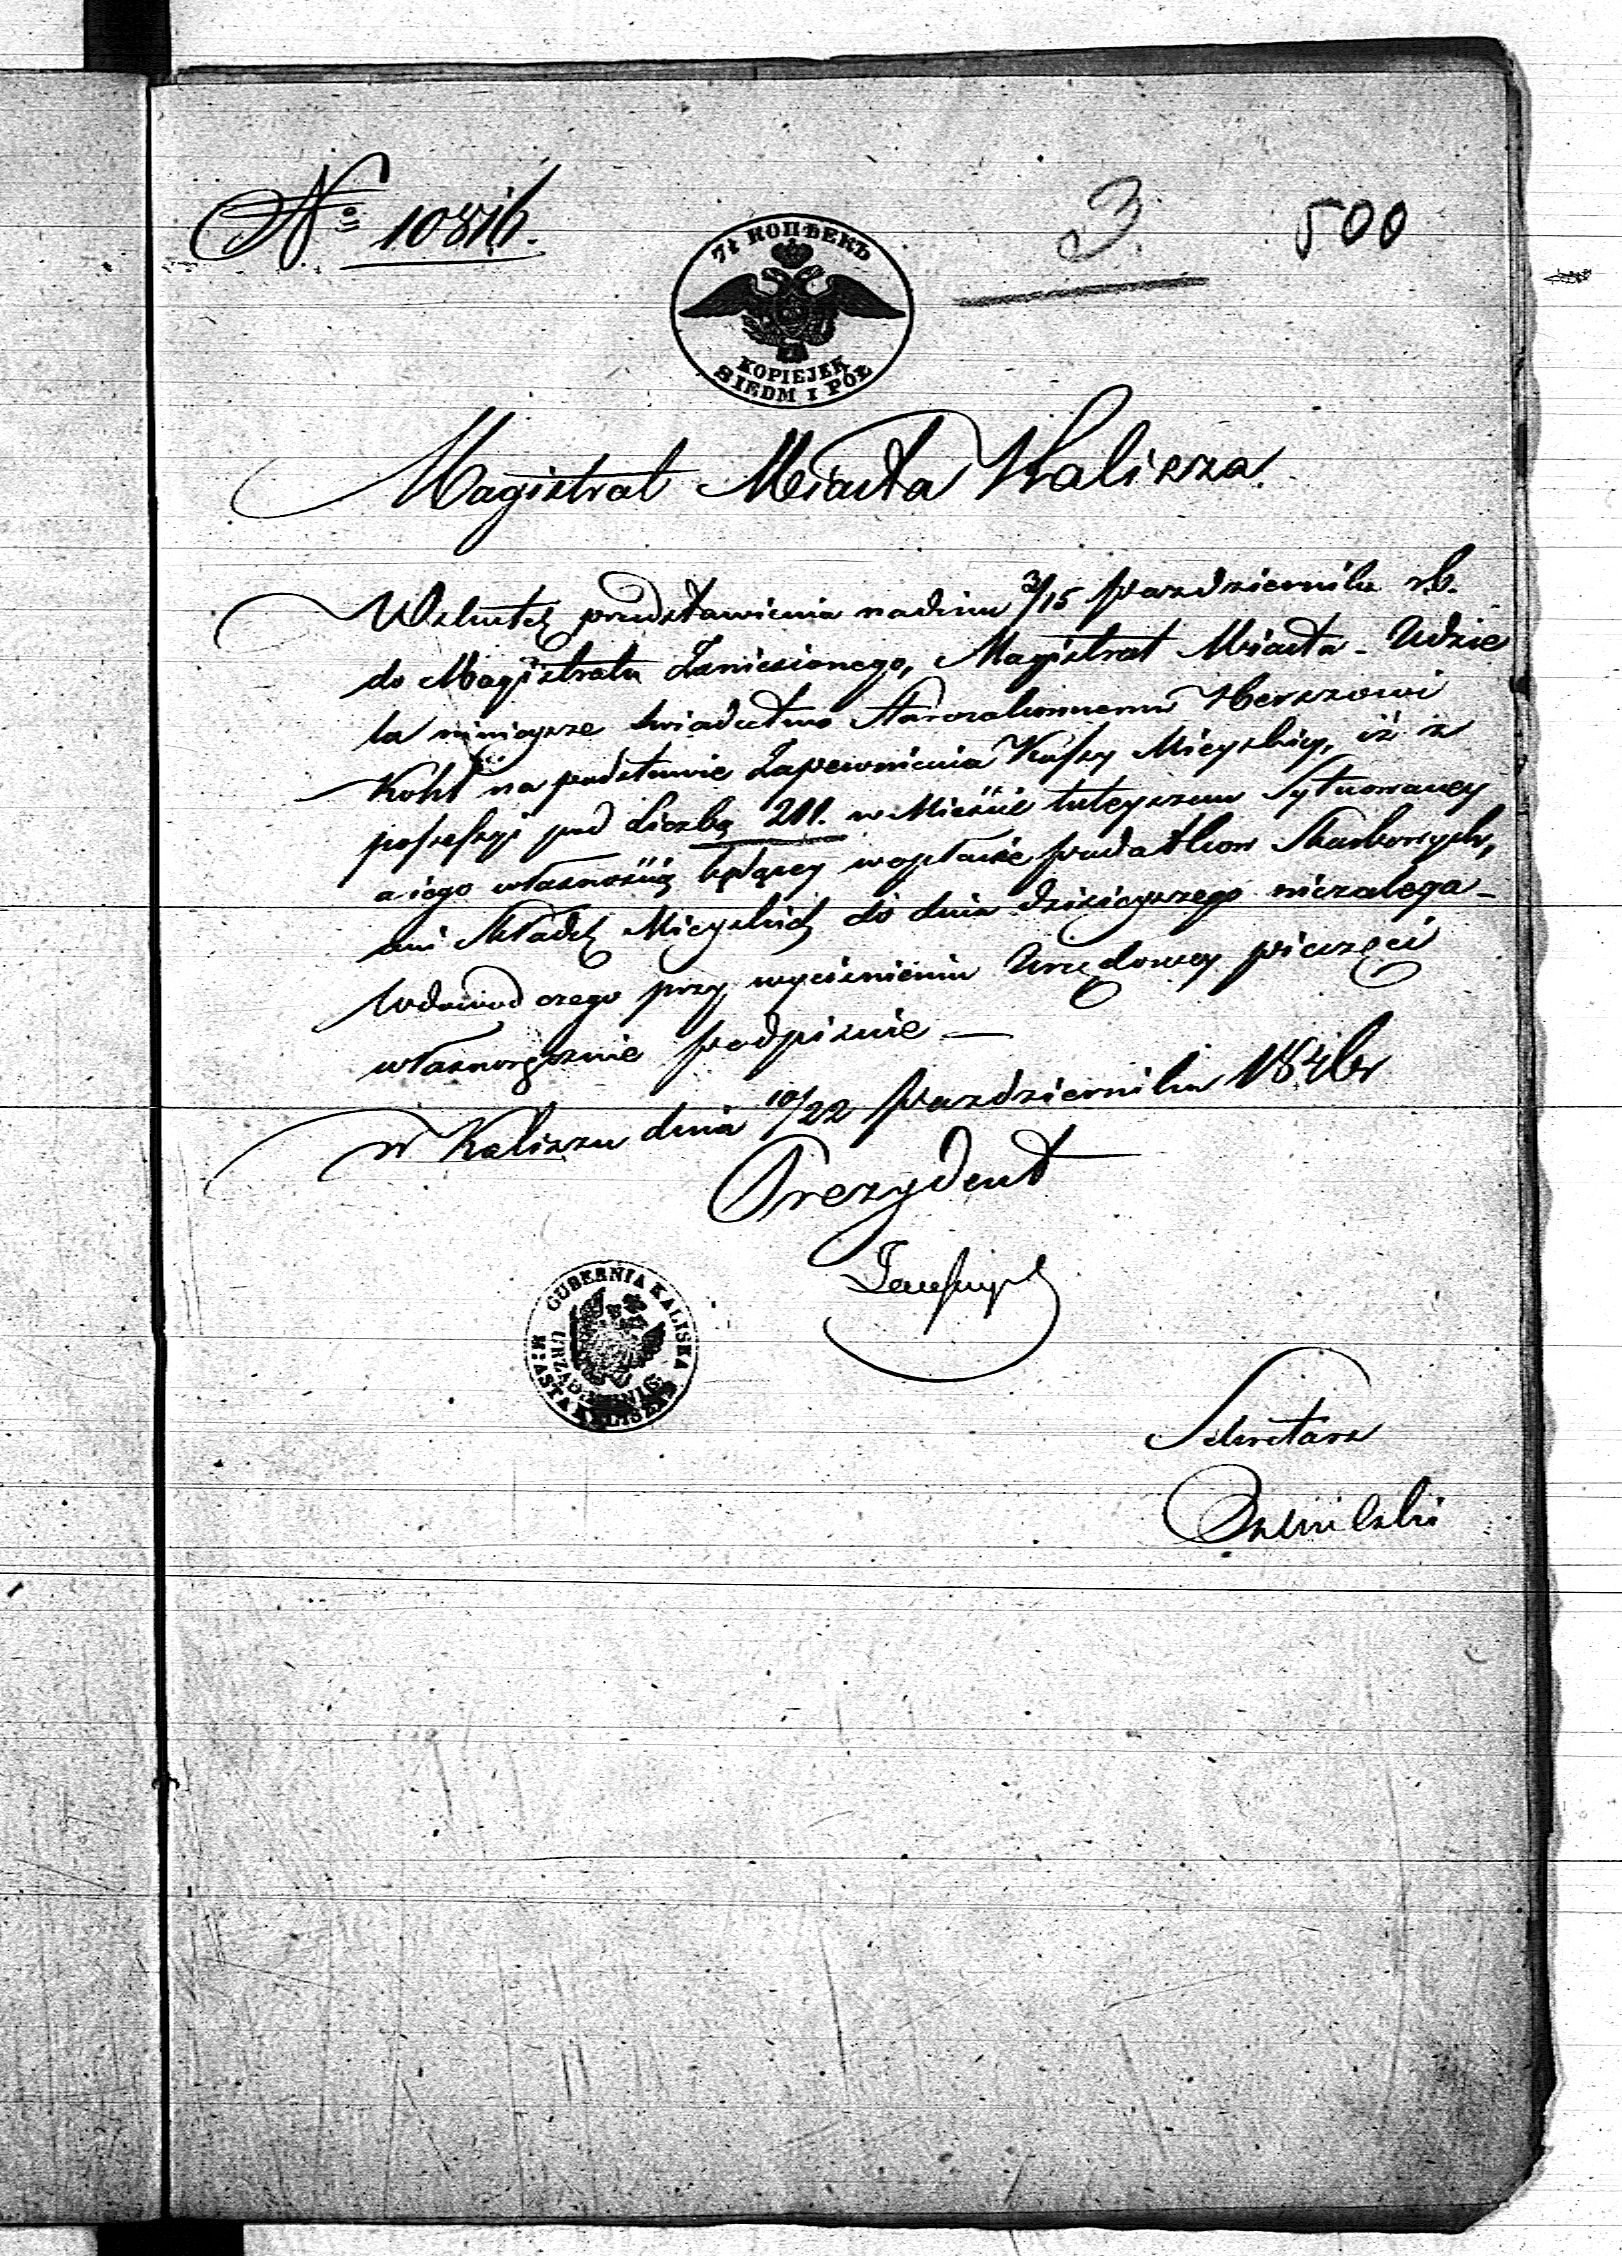 № 10816.
3.
500
7½ КОПѢЕКЪ
KOPIEJEK
SIEDM I PÓŁ
Magistrat Miasta Kalisza.
Wskutek przedstawienia nadniu 3/15 Pazdziernika r.b.
do Magistratu Zaniesionego, Magistrat Miasta - Udzie
la ninieysze Swiadectwo Starozakonnemu Herszowi
Kohl na podstawie Zapewnienia Kassy Mieyskiey, iż z
possessyi pod Liczbą 211. w Mieście tuteyszem Sytuowaney
a iego własnością będącey w opłacie podatkow Skarbowych,
ani Składek Mieyskich do dnia dzisieyszego niezalega -
Wdowod czego przy wyciśnieniu Urzędowey pieczęci
własnoręcznie podpisuie —
w Kaliszu dnia 10/22 Pazdziernika 1846r
Prezydent
GUBERNIA KALISKA
URZĄD
MIASTA KALISZA
Sekretarz